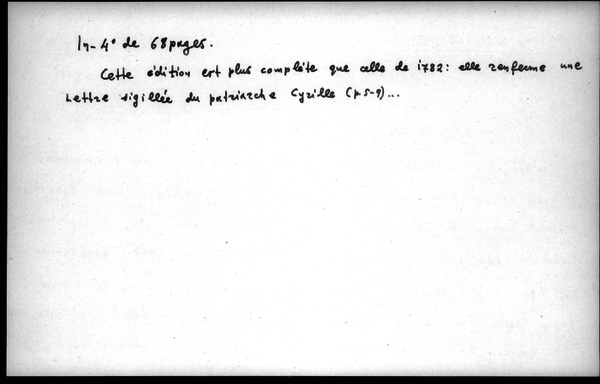 In-4° de 68 pages.
Cette édition est plus complète que celle de 1782: elle renferme une
Lettre sigillée du patriarche Cyrille (p. 5-9)...